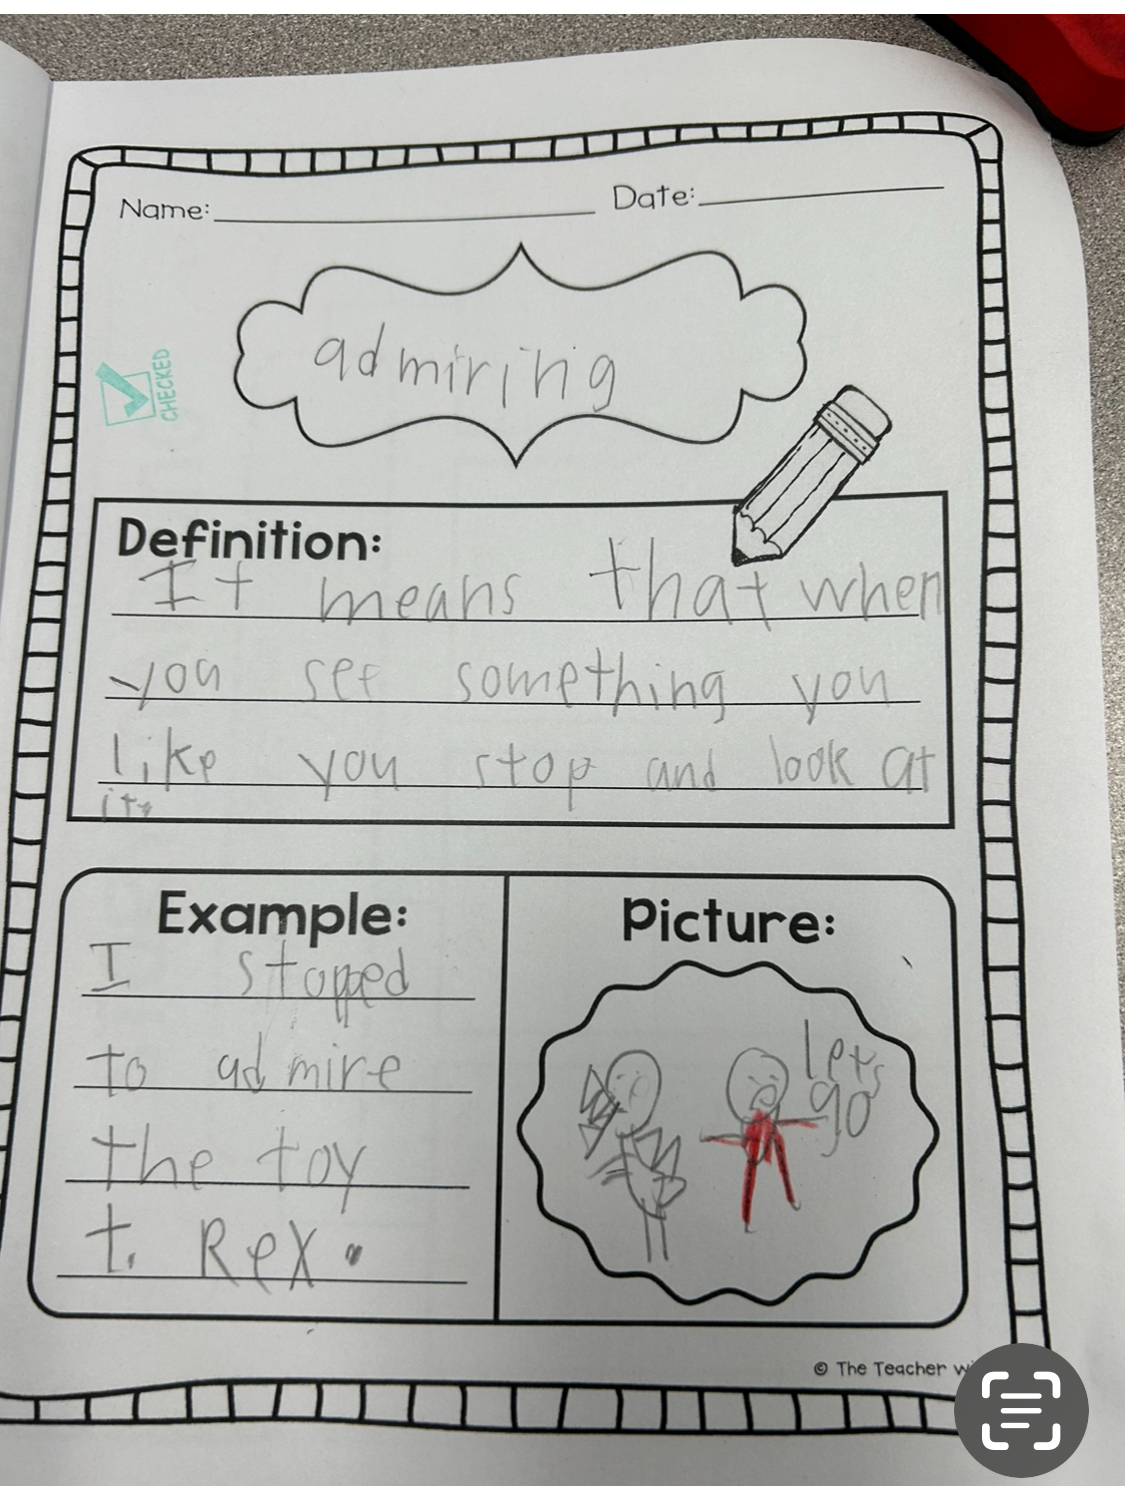 Name:
Date:
admiring
CHECKED
Definition:
It means that when
you see something you
like you stop and look at
it.
Example:
I stopped
to admire
the toy
t. Rex.
Picture:
lets
go
© The Teacher